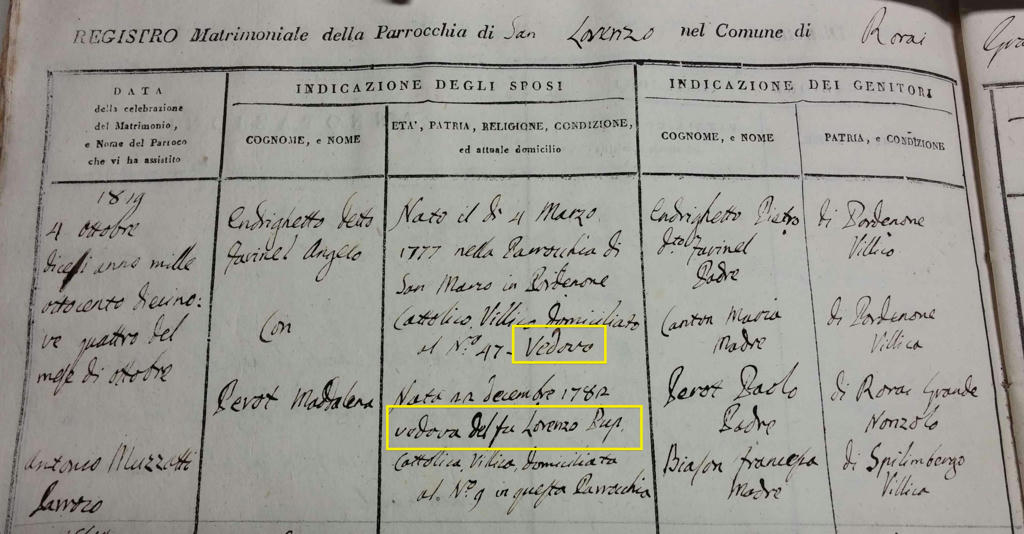 REGISTRO Matrimoniale della Parrocchia di San Lorenzo nel Comune di Rorai
DATA
della celebrazione
del Matrimonio,
e Nome del Parroco
che vi ha assistito
INDICAZIONE DEGLI SPOSI
COGNOME, e NOME
ETA', PATRIA, RELIGIONE, CONDIZIONE,
ed attuale domicilio
INDICAZIONE DEI GENITORI
COGNOME, e NOME
PATRIA, e CONDIZIONE
1819
4 ottobre
dicesi anno mille
ottocento diecino:
ve quattro del
mese di ottobre
Antonio Muzzatti
Parroco
Endrighetto detto
Favinel Angelo
Con
Perot Maddalena
Nato il di 4 Marzo
1777 nella Parrocchia di
San Marco in Pordenone
Cattolico Villico domiciliato
al Nº 47 - Vedovo
Nata decembre 1782
vedova del fu Lorenzo Pup.
Cattolica Villica domiciliata
al Nº 9 in questa Parrocchia
Endrighetto Pietro
Favinel
Padre
Canton Maria
Madre
Perot Paolo
Padre
Biason Francesca
Madre
di Pordenone
Villico
di Pordenone
Villica
di Rorai Grande
Nonzolo
di Spilimbergo
Villica